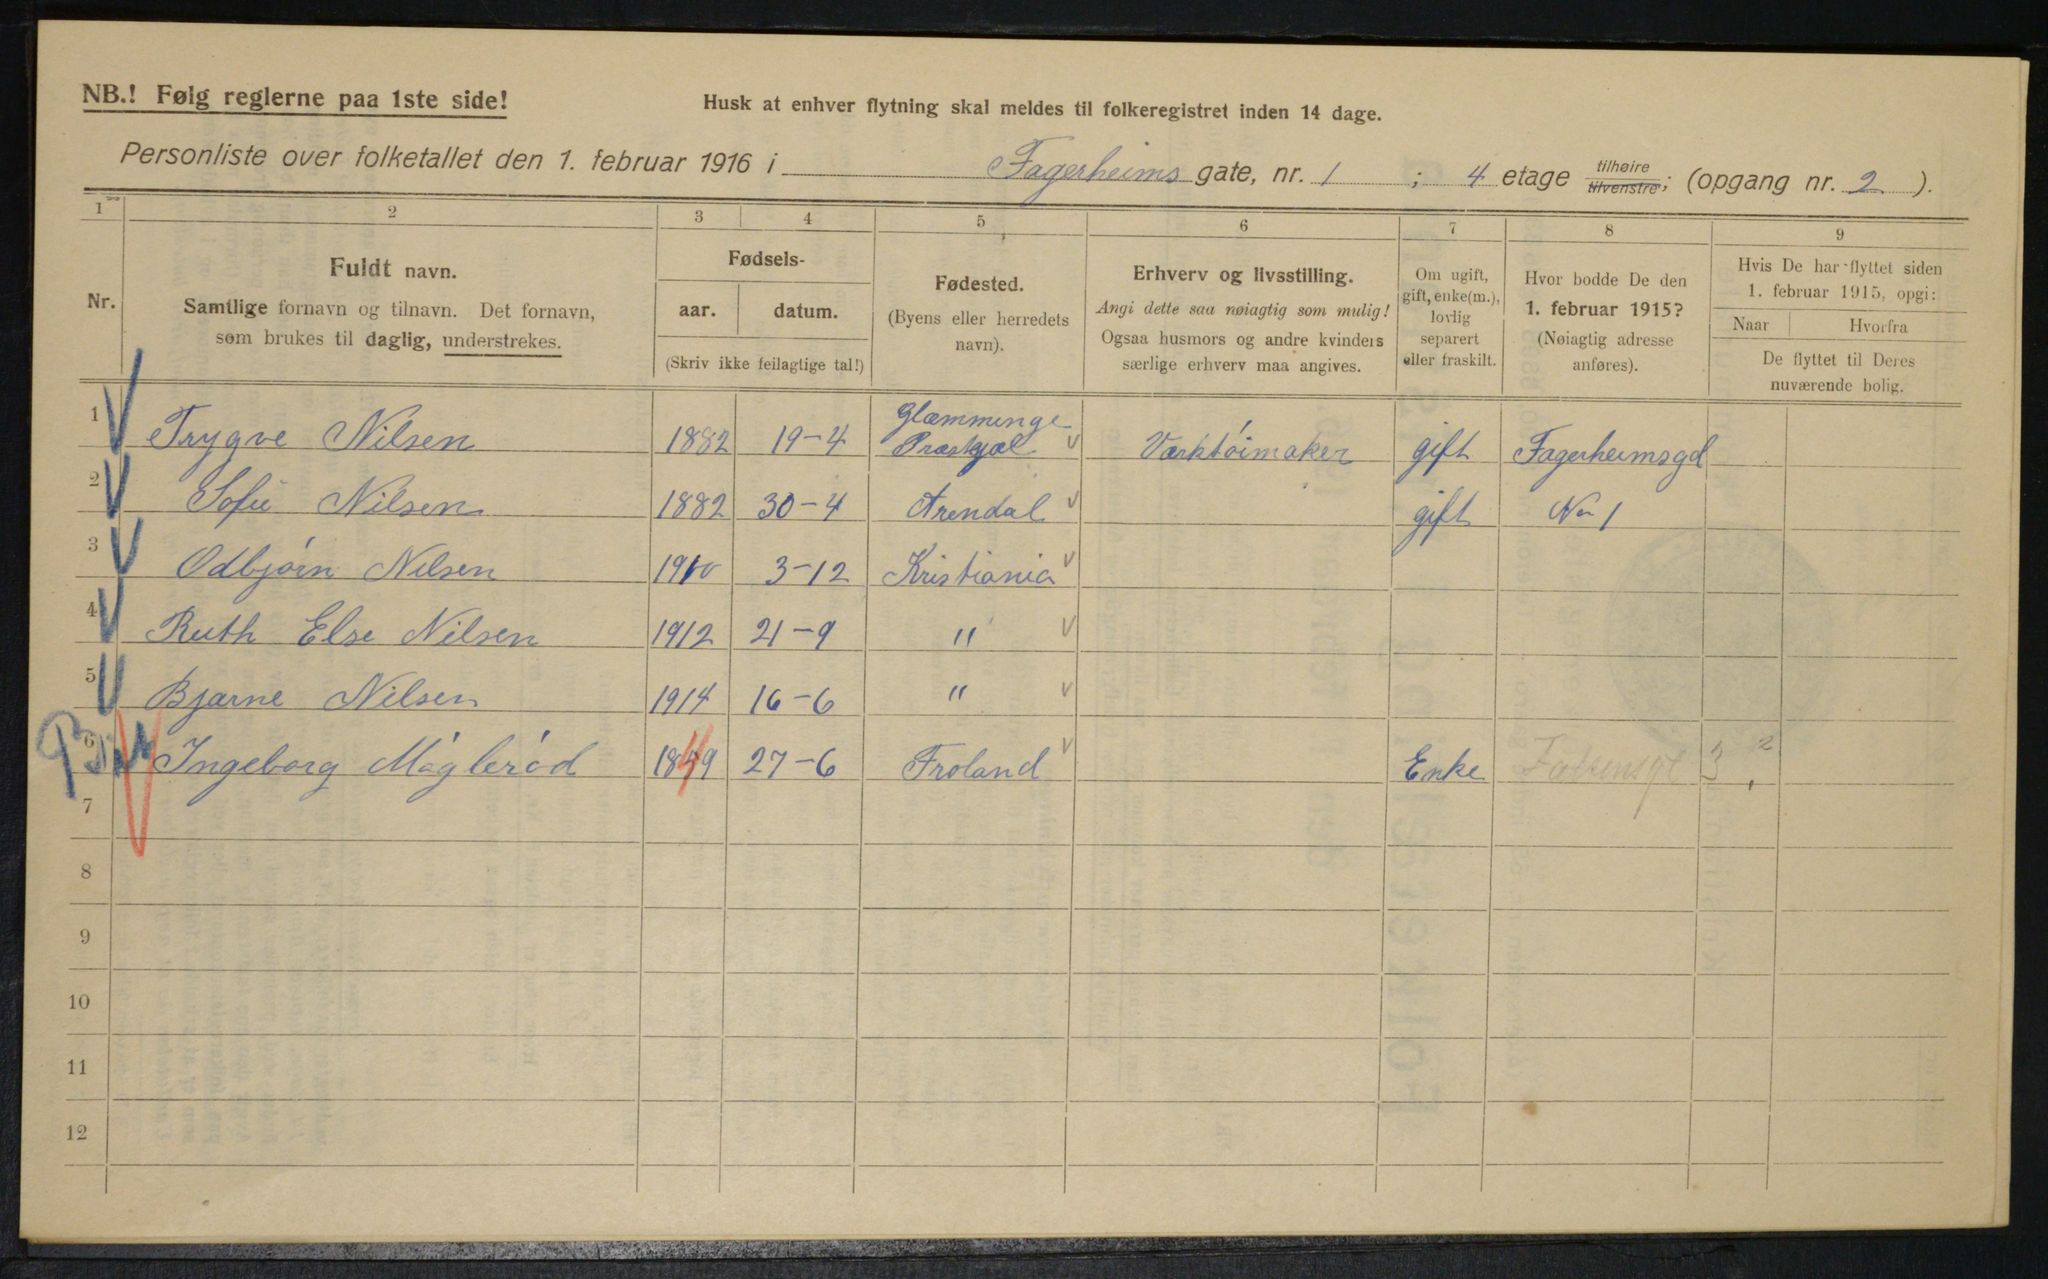 NB.! Følg reglerne paa 1ste side!
Husk at enhver flytning skal meldes til folkeregistret inden 14 dage.
Personliste over folketallet den 1. februar 1916 i Fagerheims gate, nr. 1 ; 4 etage tilhøire tilvenstre; (opgang nr. 2 ).
1 2 3 4 5 6 7 8 9
Nr.
Fuldt navn.
Samtlige fornavn og tilnavn. Det fornavn,
som brukes til daglig, understrekes.
Fødsels-
aar. datum.
(Skriv ikke feilagtige tal!)
Fødested.
(Byens eller herredets
navn).
Erhverv og livsstilling.
Angi dette saa nøiagtig som mulig!
Ogsaa husmors og andre kvinders
særlige erhverv maa angives.
Om ugift,
gift, enke(m.),
lovlig
separert
eller fraskilt.
Hvor bodde De den
1. februar 1915?
(Nøiagtig adresse
anføres).
Hvis De har flyttet siden
1. februar 1915, opgi:
Naar Hvorfra
De flyttet til Deres
nuværende bolig.
1 Trygve Nilsen 1882 19-4 Glæmminge Præstgjæl Værktøimaker gift Fagerheimsgd
2 Sofie Nilsen 1882 30-4 Arendal gift No 1
3 Odbjørn Nilsen 1910 3-12 Kristiania
4 Ruth Else Nilsen 1912 21-9 "
5 Bjarne Nilsen 1914 16-6 "
6 Ingeborg Møglerød 1849 27-6 Froland Enke Falsensgt 3, 2
7
8
9
10
11
12